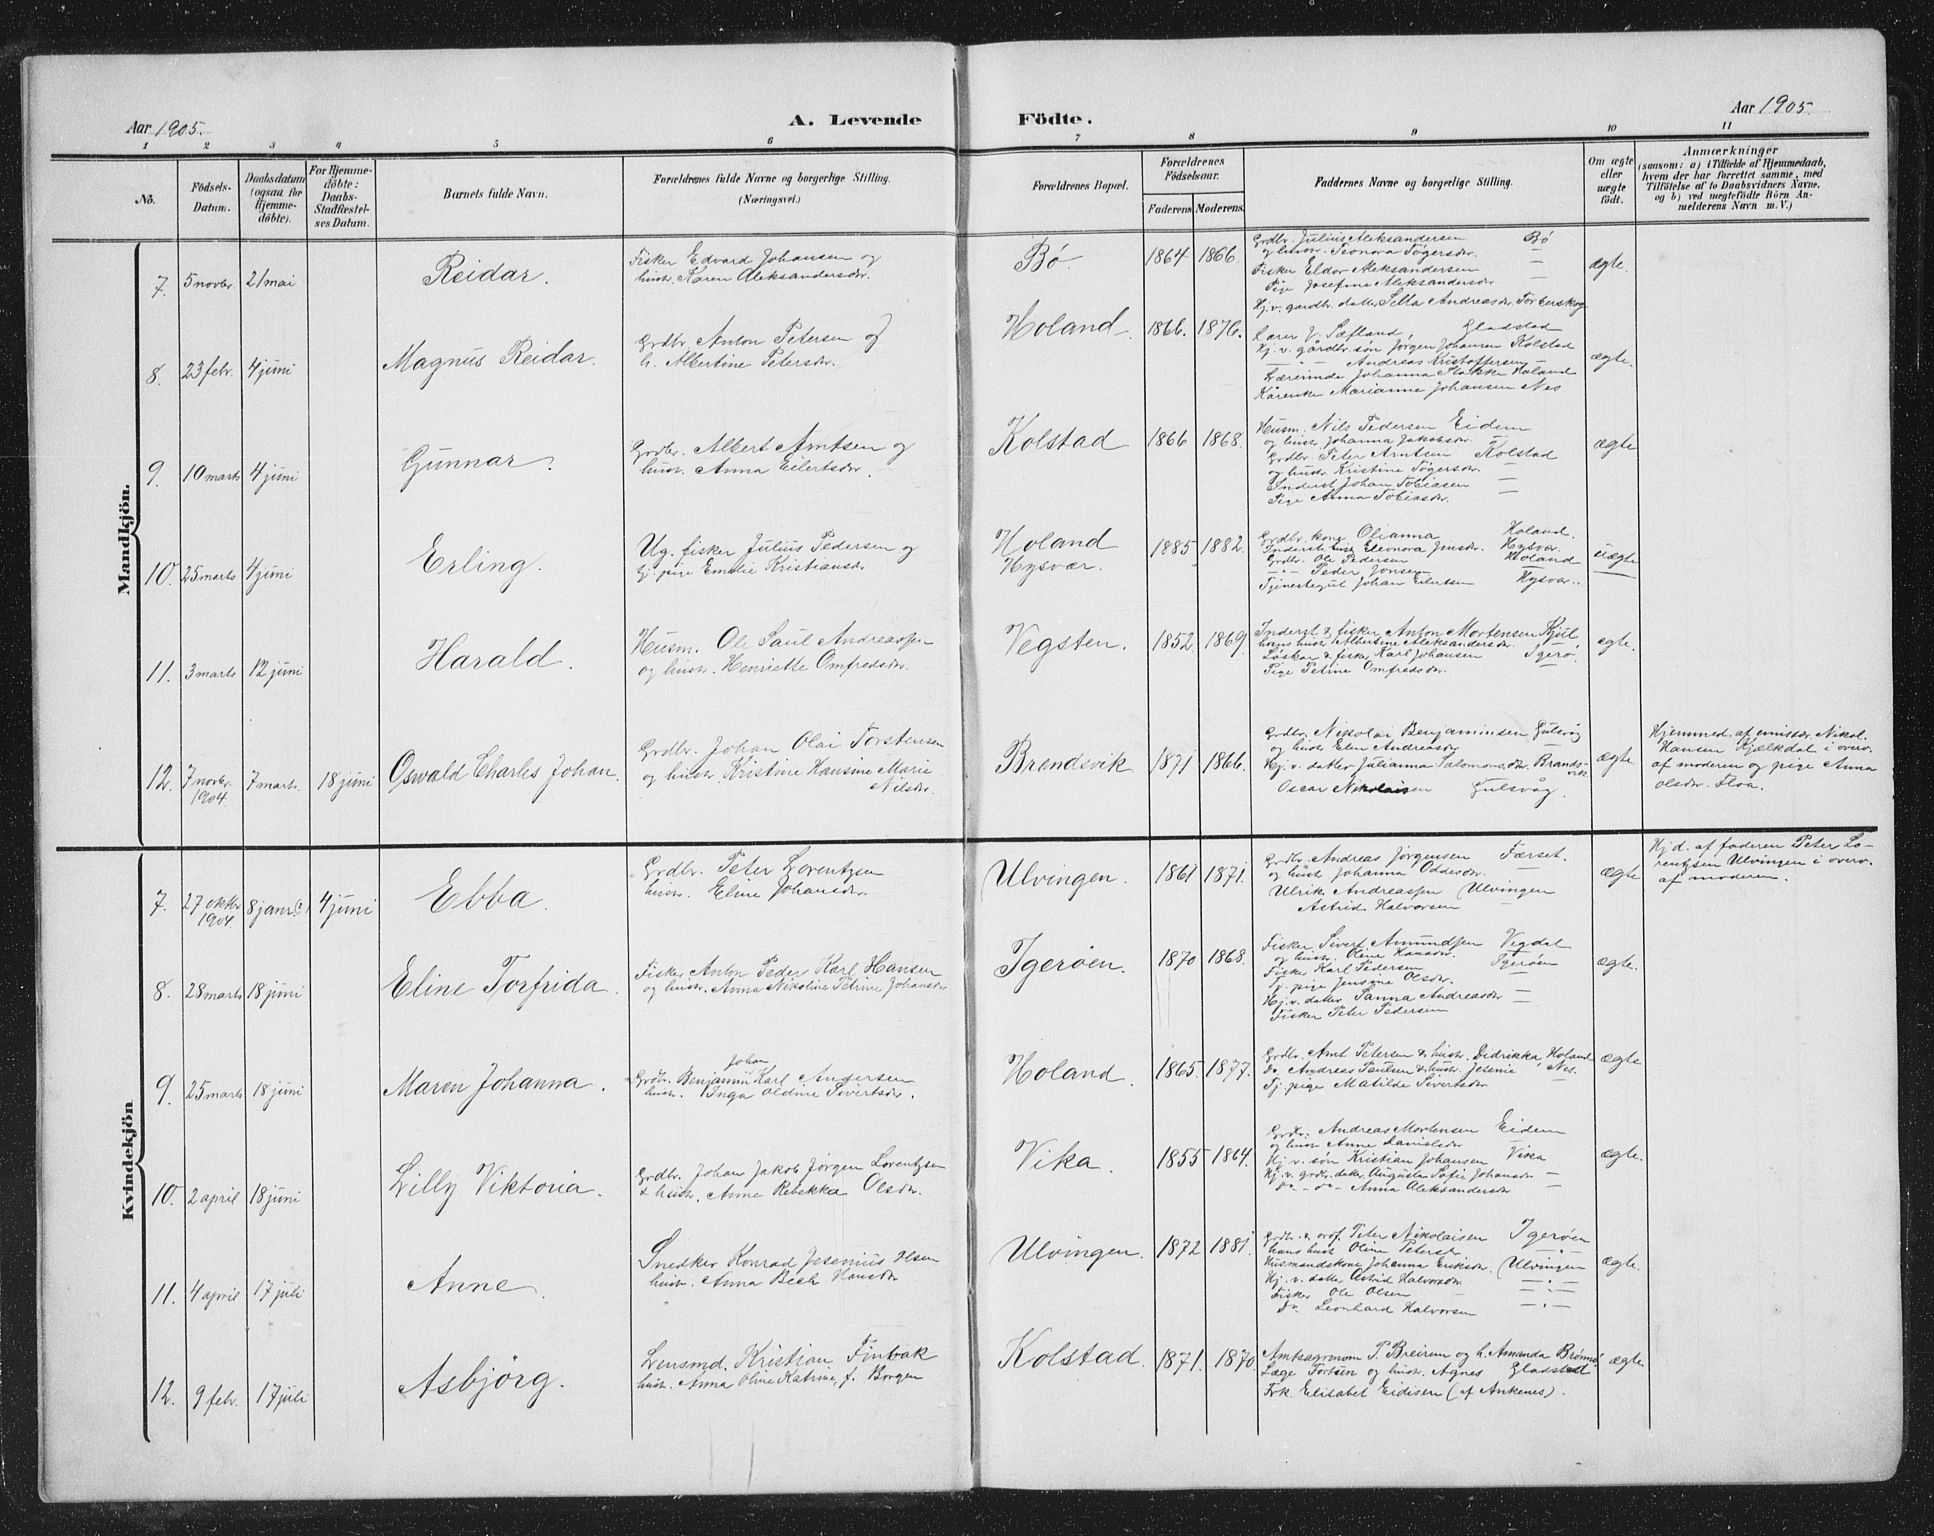 Aar 1905.
A. Levende Födte.
Aar 1905.
1 2 3 4 5 6 7 8 9 10 11
No.
Födsels-Datum.
Daabsdatum (ogsaa for Hjemme-döbte).
For Hjemme-döbte: Daabs-Stadfæstel-ses Datum.
Barnets fulde Navn.
Forældrenes fulde Navne og borgerlige Stilling.
(Næringsvei.)
Forældrenes Bopæl.
Forældrenes Födselsaar.
Faderens Moderens.
Faddernes Navne og borgerlige Stilling.
Om ægte eller uægte födt.
Anmærkninger
(saasom: a) i Tilfælde af Hjemmedaab, hvem der har forrettet samme, med Tilföielse af to Daabsvidners Navne, og b) ved uægtefödte Börn An-melderens Navn m. V.)
Mandkjön.
7. 5 novbr. 21 mai
Reidar.
Fisker Edvard Johansen og
hustr. Karen Aleksandersdr.
Bö.
1864 1866.
Grdbr. Julius Aleksandersen Bö
og hustr. Leonora Tögersdr. —
Fisker Eldor Aleksandersen —
Pige Josefine Aleksandersdr —
ægte.
8. 23 febr. 4 juni
Magnus Reidar.
Grdbr. Anton Petersen og
h. Albertine Petersdr.
Holand.
1866. 1876.
Hj. v. gårdbr. datter Sella Andreasdr. Torberskog
Lærer J. Sæfland, Gladstad
Hj. v. gårdbr. sön Jörgen Johansen Kolstad
— " — Andreas Kristoffersen —
Lærerinde Johanna Stokke Holand
Kårenke Marianne Johansen Nes
ægte.
9. 10 marts 4 juni
Gunnar.
Grdbr. Albert Arntsen og
hustr. Anna Eilertsdr.
Kolstad
1866 1868.
Husm. Nils Pedersen Eidem
og hustr. Johanna Jakobsdr. —
Grdbr. Peter Arntsen Kolstad
og hustr. Kristine Tögersdr. —
Inderst Johan Tobiasen —
Pige Anna Tobiasdr. —
ægte
10. 25 marts 4 juni
Erling.
Ug. fisker Julius Pedersen og
tj. pige Emelie Kristiansdr.
Holand
Hysvær.
1885 1882.
Grdbr. kone Olianna Holand.
Inderst hust Eleonora Jensdr. Hysvær
Grdbr. Ole Pedersen Holand
— " — Peder Jonsen —
Tjenestegut Johan Eilertsen Hysvær.
uægte
11. 3 marts 12 juni
Harald.
Husm. Ole Saul Andreassen
og hustr. Henriette Omfredsdr.
Vegsten.
1852. 1869.
Inderst & fisker Anton Mortensen Kjul
hans hustr. Albertine Aleksandersdr.
Löskar & fisker Karl Johansen Igerö.
Pige Petrine Omfredsdr.
ægte.
12. 7 novbr. 1904. 7 marts 18 juni
Oswald Charles Johan.
Grdbr. Johan Olai Torstensen
og hustr. Kristine Hansine Marie
Nilsdr.
Brandsvik
1871 1866.
Grdbr. Nikolai Benjaminsen Gulsvåg
og hustr. Elen Andreasdr —
Hj. v. datter Julianna Salomonsdr. Brands-
vik
Oscar Nikolaisen Gulsvåg.
ægte
Hjemmed. af emissær Nikol.
Hansen Kjelkdal i overv.
af moderen og pige Anna
Olsdr. Floa.
Kvindekjön
7. 27 oktbr. 1904. 8 janr(?) 4 juni
Ebba.
Grdbr. Peter Lorentzsen
hustr. Eline Johansdr.
Ulvingen.
1861 1871.
Grdbr. Andreas Jörgensen Færset.
og hustr. Johanna Oddesdr. —
Ulrik Andreassen Ulvingen
Astrid Halvorsen —
ægte
Hjd. af faderen Peter Lo-
rentzsen Ulvingen i overv.
af moderen.
8. 28 marts 18 juni
Eline Torfrida.
Fisker Anton Peder Karl Hansen
og hustr. Anna Nikoline Petrine Johansdr
Igeröen.
1870 1868.
Fisker Sivert Amundsen Vegdal
og hustr. Oline Hansdr. Igeröen
Fisker Karl Pedersen —
Tj. pige Jensine Olsdr. —
Hj. v. datter Sanna Andreasdr —
Fisker Peter Pedersen
ægte.
9. 25 marts 18 juni
Maren Johanna.
Johan
Grdbr. Benjamin Karl Andersen
hustr. Inga Oldine Sivertsdr.
Holand.
1865. 1877.
Grdbr. Arnt Petersen & hustr. Didrikka, Holand
Do. Andreas Paulsen & hustr. Jesenie, Nes.
Tj. pige Matilde Sivertsdr —
ægte
10. 2 april 18 juni
Lilly Viktoria.
Grdbr. Johan Jakob Jörgen Lorentzsen
& hustr. Anne Rebekka Olsdr.
Vika.
1855 1864.
Grdbr. Andreas Mortensen Eidem
og hustr Anne Danielsdr —
Hj. v. sön Kristian Johansen Vika
Hj. v. grdbr. datter Augusta Sofie Johansdr —
do — do — Anna Aleksandersdr
ægte.
11. 4 april 17 juli
Anne.
Snedker Konrad Jesenius Olsen
hustr. Anna Bech Hansdr
Ulvingen.
1872 1881.
Grdbr. & prof. Peter Nikolaisen Igeröen
hans hustr Oline Petersdr — " —
Husmandskone Johanna Eriksdr. Ulvingen
Hj. v. datter Astrid Halvorsdr — " —
Fisker Ole Olsen — " —
do Leonhard Halvorsen — " —
ægte.
12. 9 febr. 17 juli
Asbjörg.
Lensmd. Kristian Finbak
hustr. Anna Oline Katrine, f. Borgen
Kolstad.
1871. 1870
Amtsagronom P. Breirem og h. Amanda Brönnö
Læge Tortsen og hustr. Agnes Gladstad
Frk. Elisabet Eidisen (af Ankenes).
ægte